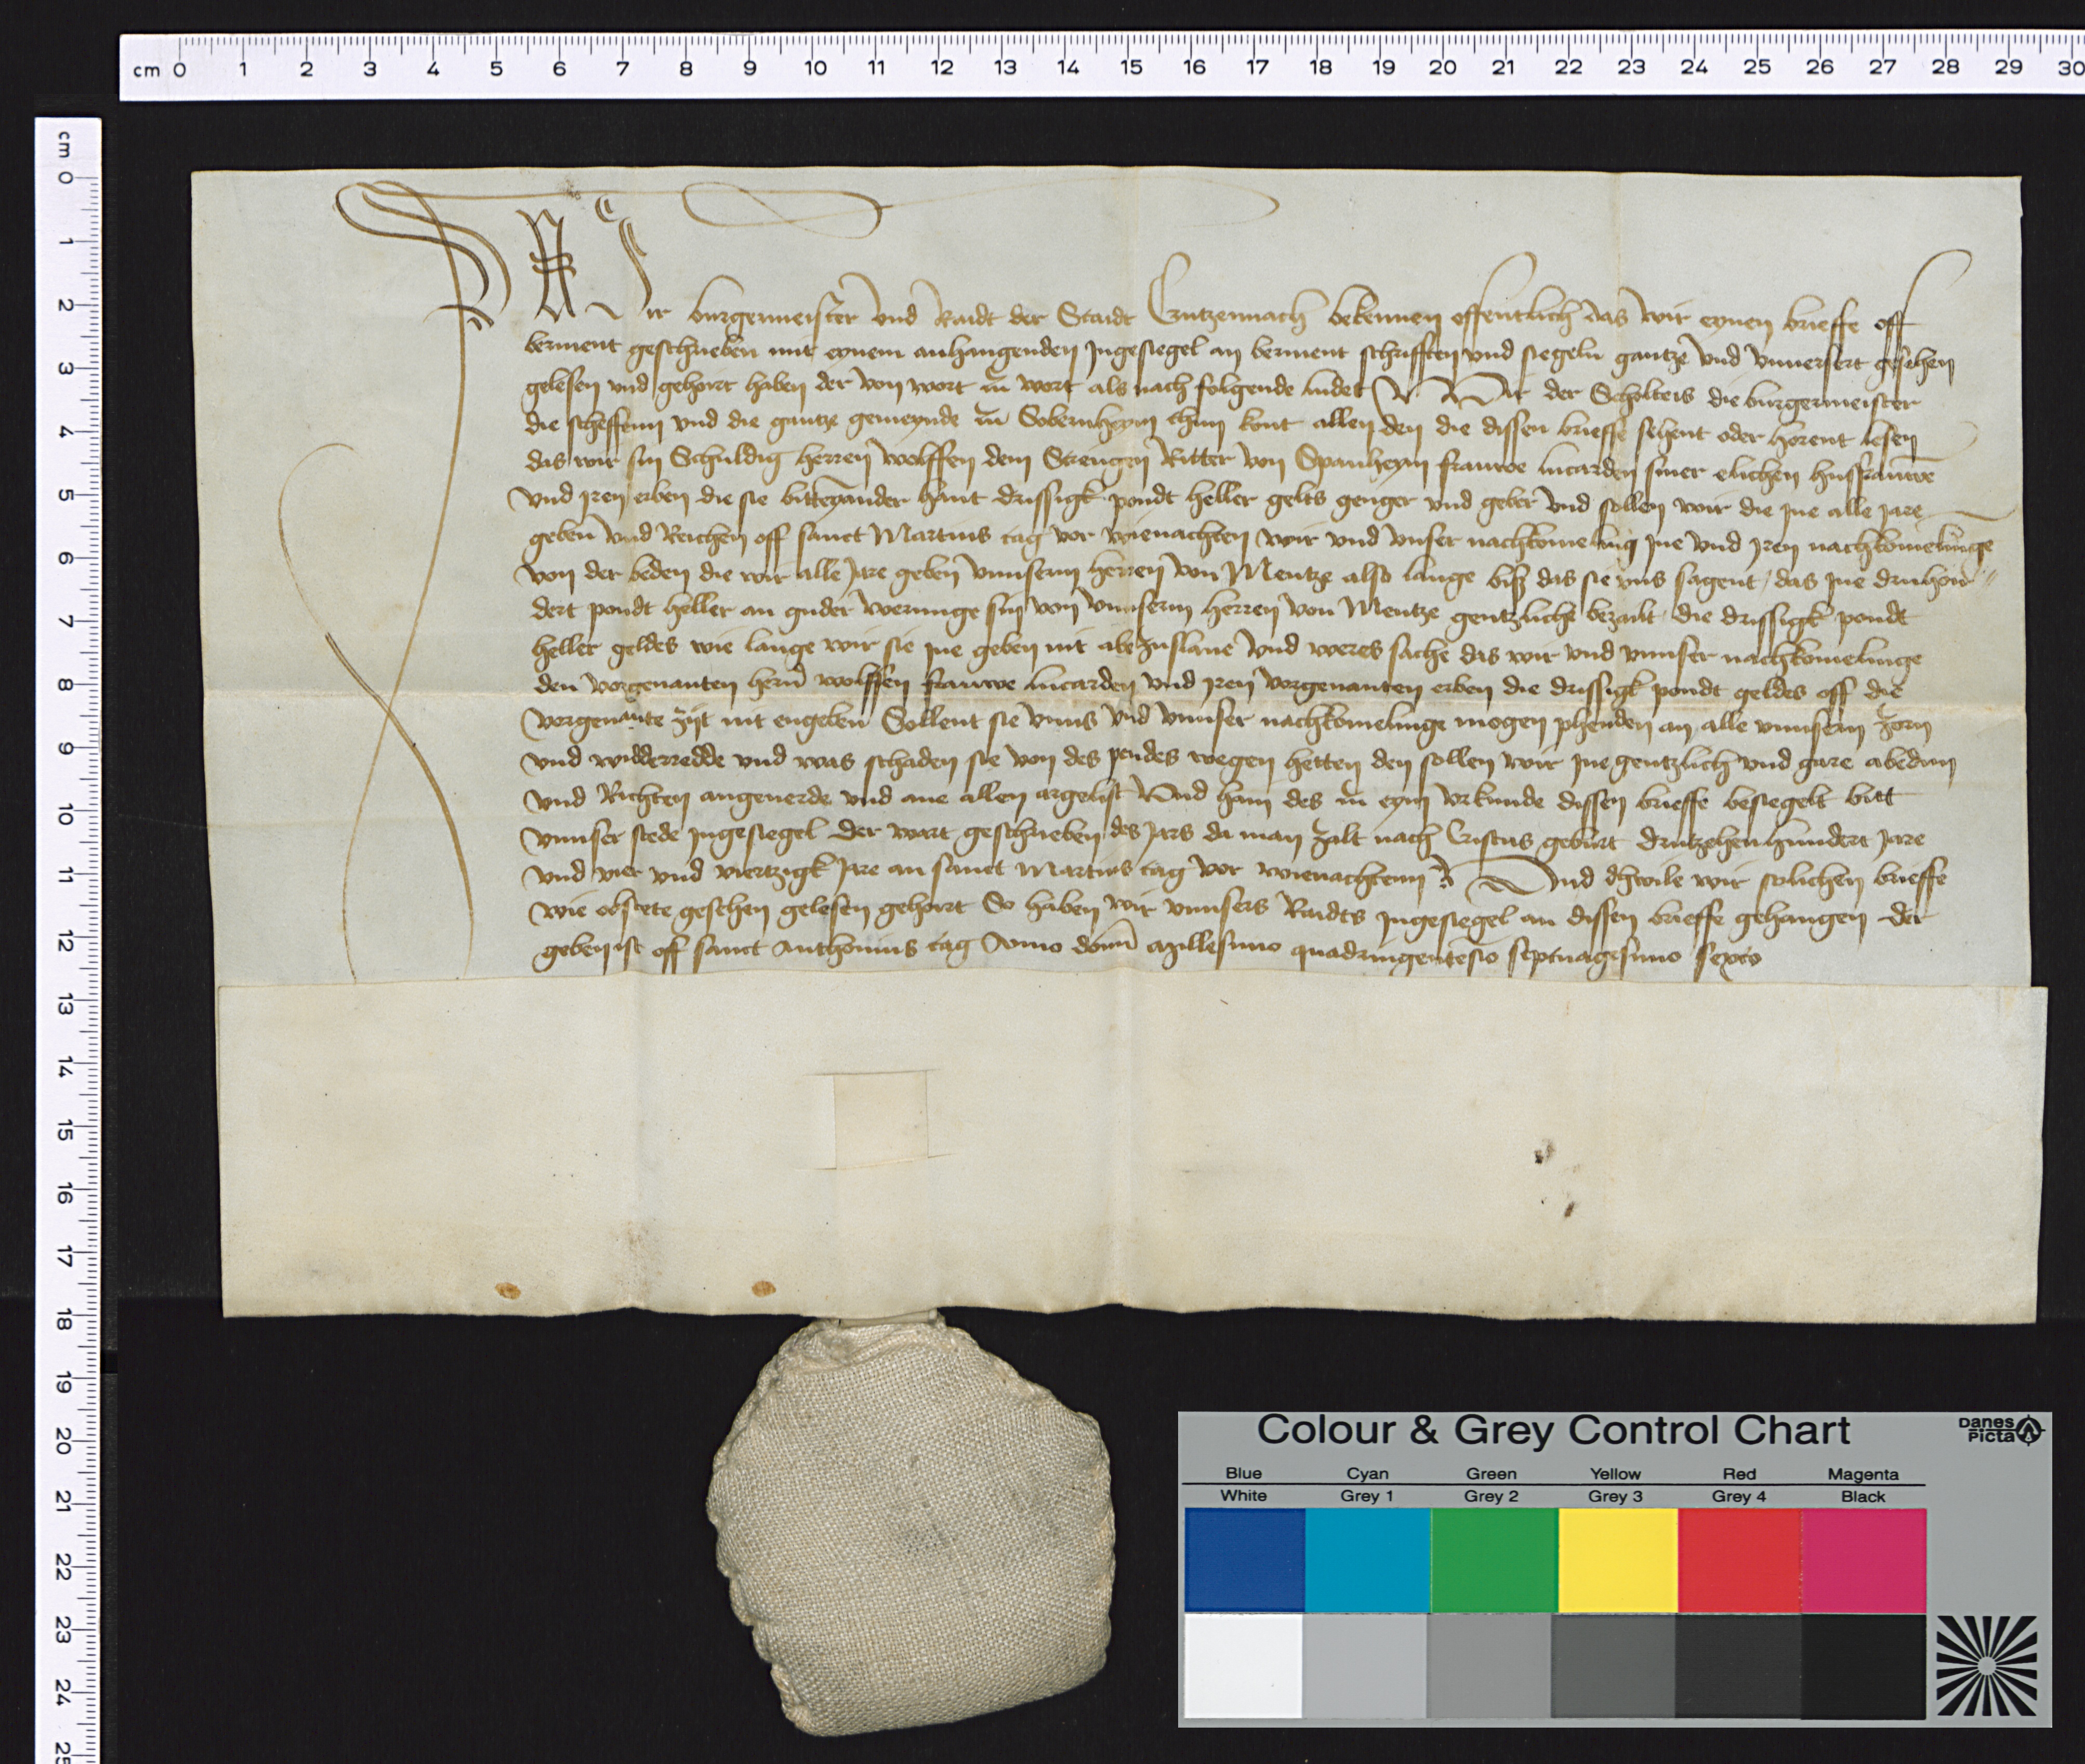 cm 0 1 2 3 4 5 6 7 8 9 10 11 12 13 14 15 16 17 18 19 20 21 22 23 24 25 26 27 28 29 30
cm 0 1 2 3 4 5 6 7 8 9 10 11 12 13 14 15 16 17 18 19 20 21 22 23 24 25
Wir burgermeister und Raidt der Staidt Crutzennach bekennen offentlich das wir eynen brieffe off
berment geschrieben mit eynem anhangenden Ingesiegel an berment schrifften und siegeln gantze und unuersert gesehen
gelesen und gehort haben der von wort zu wort als nach folgende ludet Wir der Scholteis die burgermeister
die scheffenn und die gantze gemeynde zu Sobernheym thun kont allen den die dissen brieffe sehent oder horent lesen
das wir sin Schuldig herren wolffen dem Strengen Ritter von Spanheym frauwe lucarden siner elichen husfrauwe
und iren erben die sie bitteynander hant drissigk pondt heller gelts genger und geber und sollen wir die ine alle jare
geben und Reichen off sanct Martins tag vor wienachten wir und unser nachkomeling ine und iren nachkomelinge
von der beden die wir alle jare geben unnserm herren von Mentze also lange biß das sie uns sagent / das ine druhon//
dert pondt heller an guder werunge sin von unnserm herren von Mentze gentzliche bezalt die drissigk pondt
heller geldes wie lange wir sie ine geben nit abezuslane und weres sache das wir und unnser nachkomelinge
den vorgenanten hern wolffen frauwe lucarden und iren vorgenanten erben die drissigk pondt geldes off die
vorgenante zijt nit engeben Sollent sie unns und unnser nachkomelinge mogen phenden an alle unnsern zorn
und widderredde und was schaden sie von des pendes wegen hetten den sollen wir ine gentzlich und gare abedun
und Richten angeuerde und ane allen argelist Und han des zu eym urkunde dissen brieffe besiegelt bitt
unnser stede ingesiegel der wart geschrieben des jars da man zalt nach Cristus geburt drutzehenhundert jare
und vier und viertzigk jare an sanct Martins tag vor wienachtenn Und dhwile wir solichen brieffe
wie obstete gesehen gelesen gehort So haben wir unnsers Raidts ingesiegel an dissen brieffe gehangen der
geben ist off sanct Anthonius tag Anno domi millesimo quadringentesio septuagesimo sexto
Colour & Grey Control Chart
Danes Picta
Blue Cyan Green Yellow Red Magenta
White Grey 1 Grey 2 Grey 3 Grey 4 Black